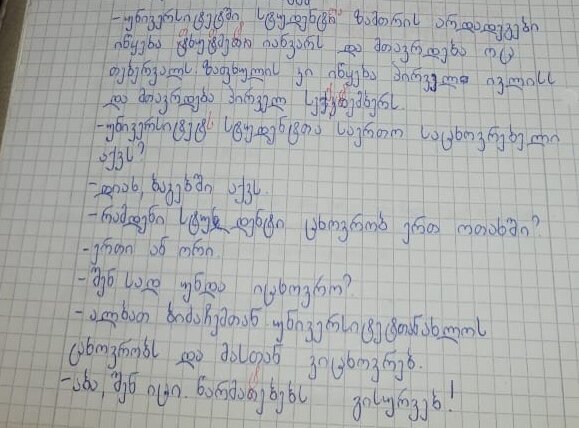 - უნივერსიტეტში სტუდენტის ზამთრის არდადეგები
იწყება იანვარს და მთავრდება ოც
თებერვალს. ზაფხულის კი იწყება პირველ ივლისს
და მთავრდება პირველ სექტემბერს.
- უნივერსიტეტს სტუდენტთა საერთო საცხოვრებელი
აქვს?
- დიახ, ბაგებში აქვს.
- რამდენი სტუდენტი ცხოვრობს ერთ ოთახში?
- ერთი ან ორი.
- შენ სად უნდა იცხოვრო?
- ალბათ ბიძაჩემთან უნივერსიტეტთანახლოს
ცხოვრობს და მასთან ვიცხოვრებ.
- აბა, შენ იცი. წარმატებებს გისურვებ!